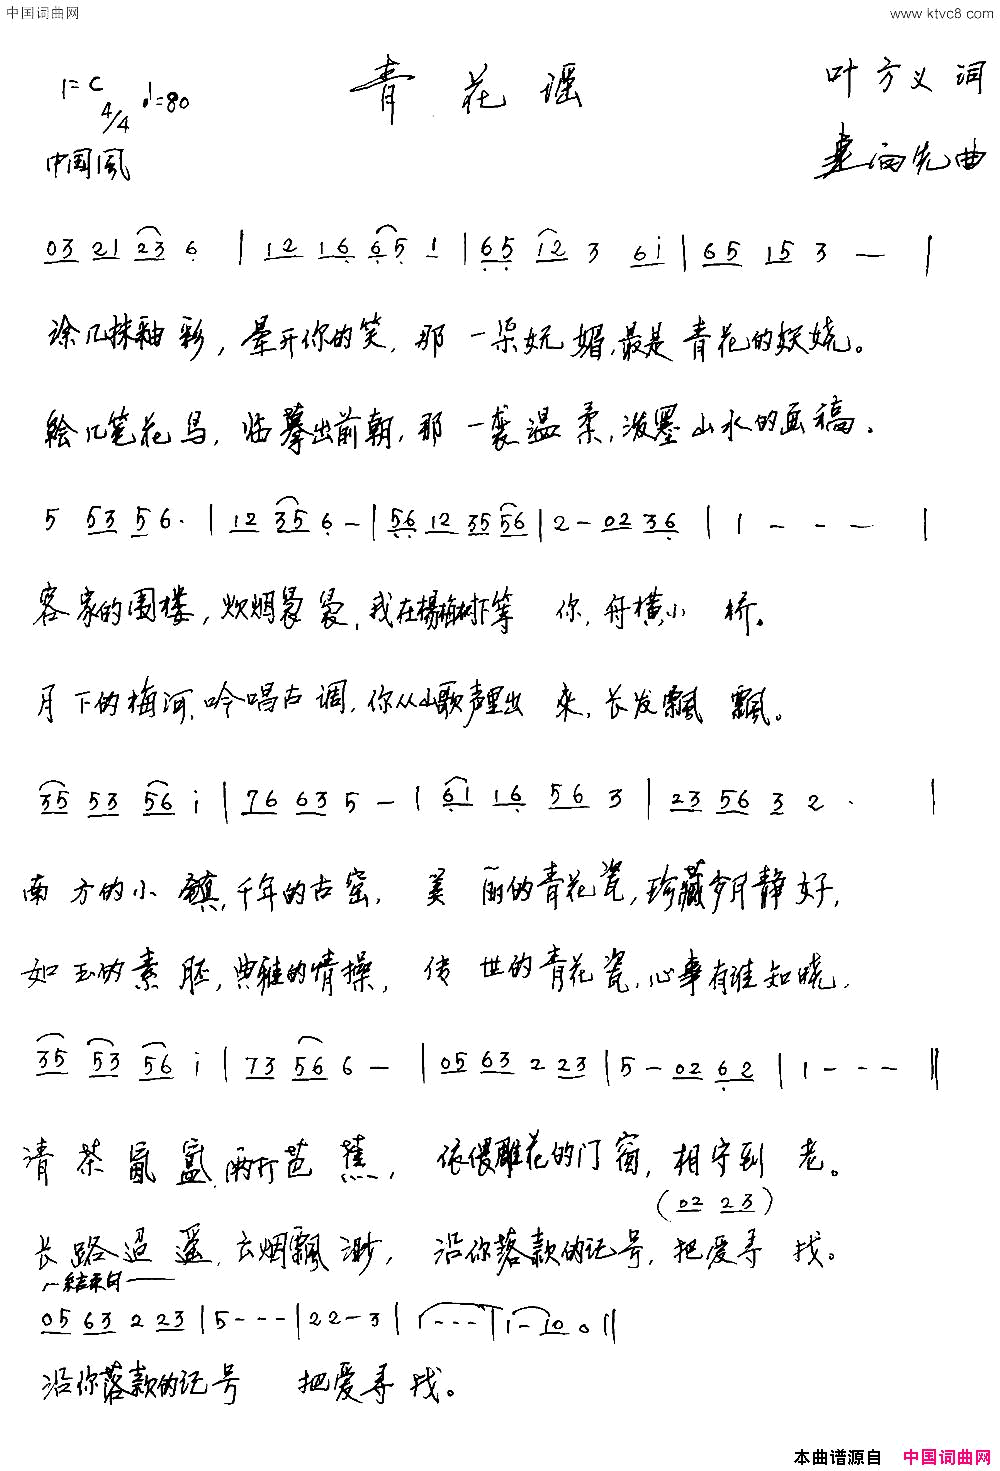 中国词曲网 www.ktvc8.com
1=C 4/4 ♩=80 青花谣 叶方义 词
中国風 向先曲
03 21 23 6 | 12 16 65 1 | 65 12 3 61 | 65 15 3 — |
涂几抹釉彩，晕开你的笑，那一朵妩媚，最是青花的妖娆。
绘几笔花鸟，临摹出前朝，那一袭温柔，泼墨山水的画稿。
5 53 56· | 12 35 6 - | 56 12 35 56 | 2 - 02 36 | 1 - - - |
客家的围楼，炊烟袅袅，我在杨梅树下等你，舟横小桥。
月下的梅河，吟唱古调，你从山歌声里出来，长发飘飘。
35 53 56 i | 76 63 5 - | 61 16 56 3 | 23 56 3 2 · |
南方的小镇，千年的古窑，美丽的青花瓷，珍藏岁月静好，
如玉的素胚，典雅的情操，传世的青花瓷，心事有谁知晓，
35 53 56 i | 73 56 6 - | 05 63 2 23 | 5 - 02 62 | 1 - - - ‖
清茶氤氲，雨打芭蕉，依偎雕花的门窗，相守到老。
(02 23)
长路迢遥，云烟飘渺，沿你落款的记号，把爱寻找。
结束句
05 63 2 23 | 5 - - - | 22 - 3 | 1 - - - | 1 - 10 0 ‖
沿你落款的记号 把爱寻找。
本曲谱源自 中国词曲网